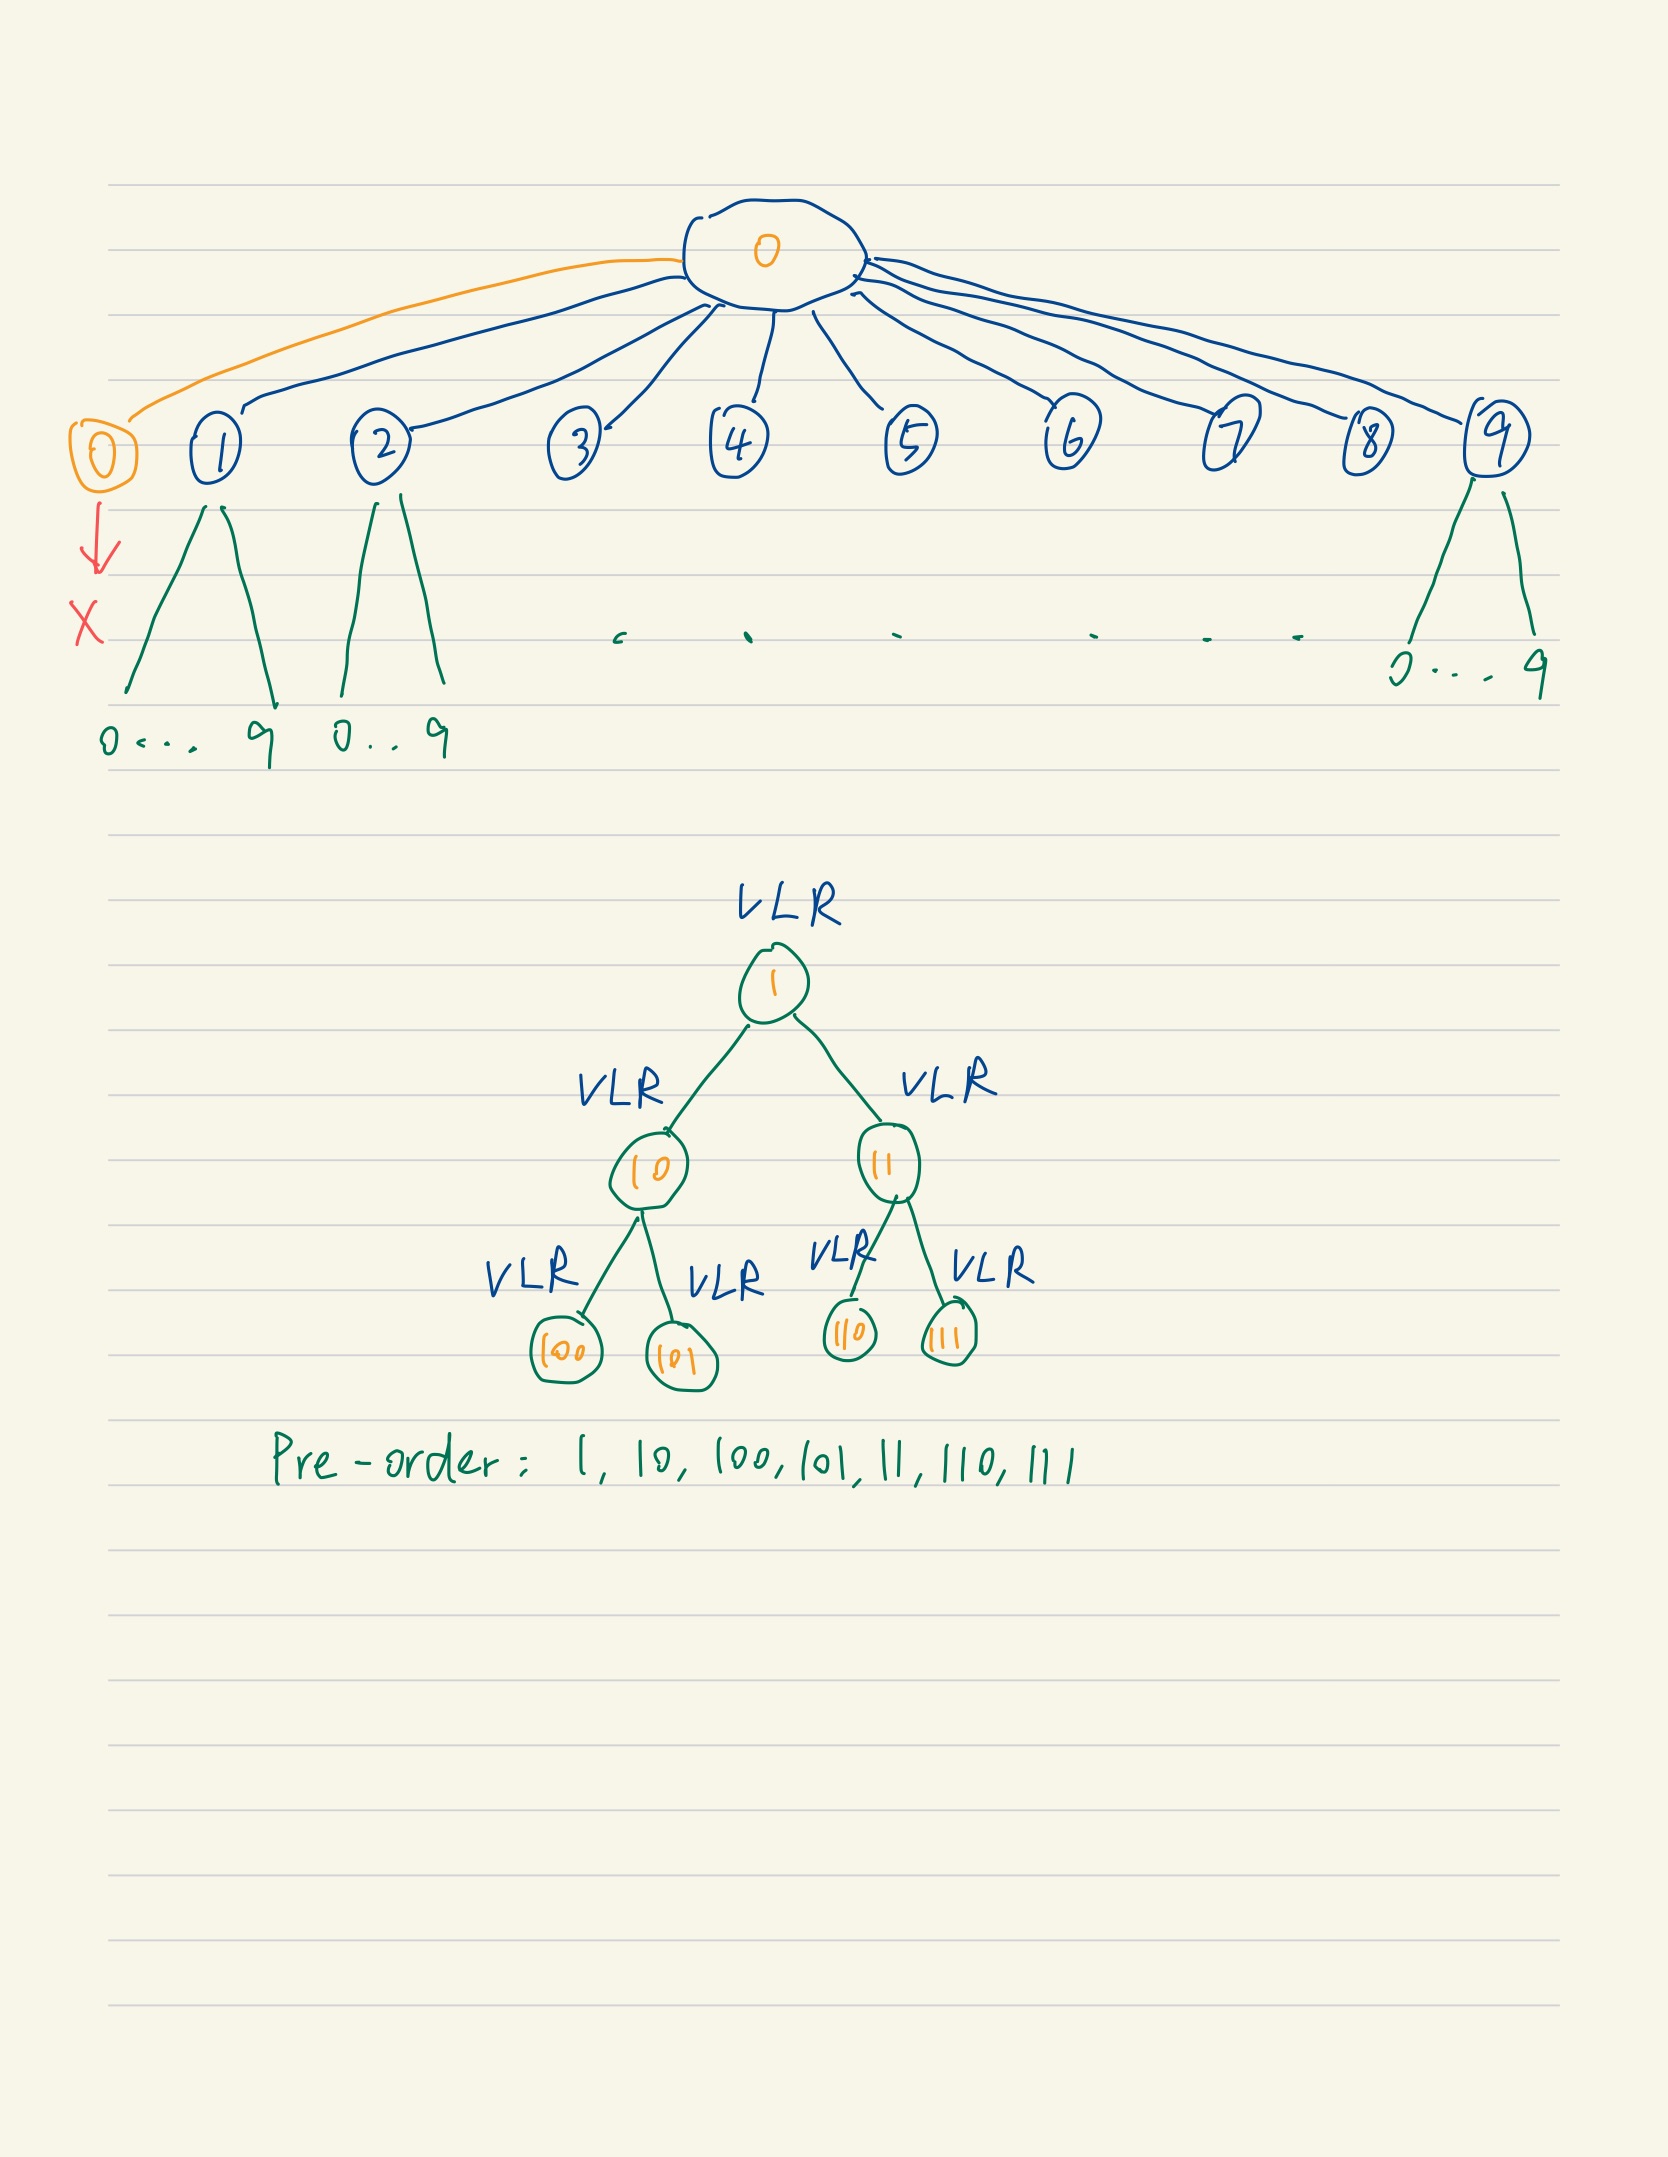 0
0 1 2 3 4 5 6 7 8 9
X
0 ... 9
0 ... 9 0 .. 9
VLR
1
VLR VLR
10 11
VLR VLR VLR VLR
100 101 110 111
Pre-order: 1, 10, 100, 101, 11, 110, 111